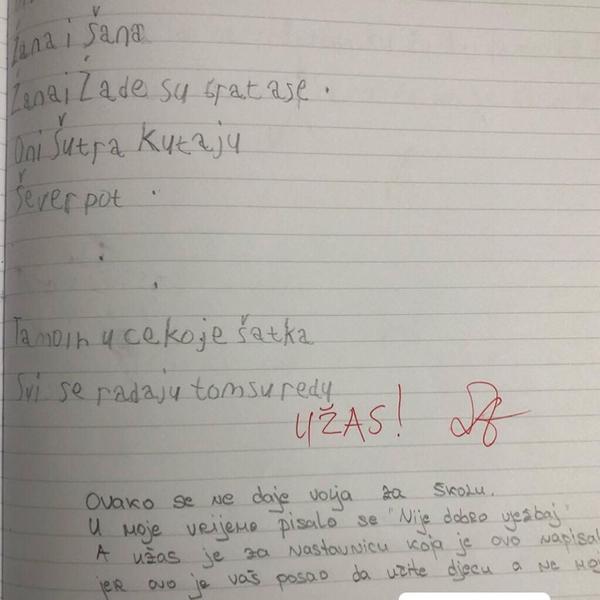 Žana i Šana
Žanai Žade su bratase.
Oni Šutra Kutaju
Šever pot
Tamoih ucekoje šatka
Svi se radaju tomsuredu
UŽAS!
OVAKO SE NE daje volja za ŠKOLU.
U MOJE VRIJEME PISALO SE "Nije dobro vježbaj"
A UŽAS je za NASTAVNICU KOJA je OVO NAPISAL
jer OVO je VAŠ POSAO da UČITE djecu a NE